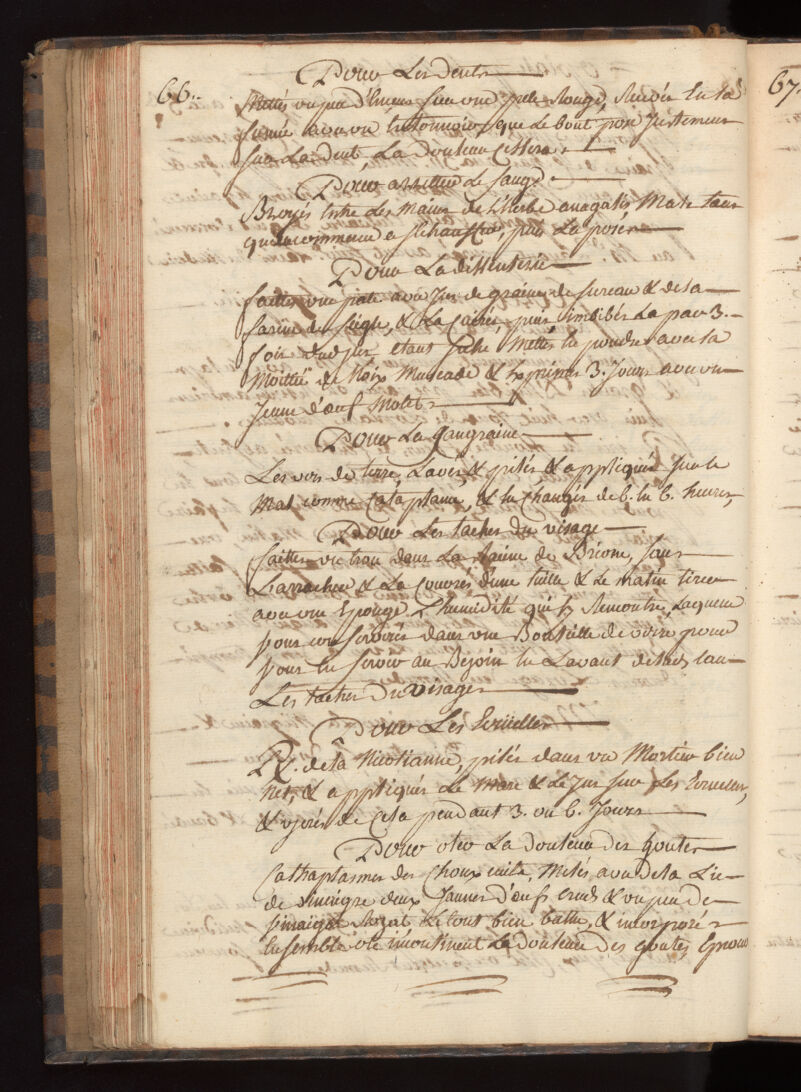 66.
Pour Les dents
Mettés un peu d'Encens sur une pele Rouge, Recevés En la
fumée avec un Entonnoir, que Le bout pose Justement
sur La dent, La douleur Cessera
Pour arretter Le sang
Broyés Entre Les Mains de L'herbe anagalis Male tant
quelle commence a s'Echauffer, puis La posés
Pour La dissenterie
faittes une pate avec Jus de graine de sureau & de la
farine de segle, & La Cuirés, puis L'imbibés La par 3.
fois dud. jus, etant seche Mettés En poudre avec la
Moitié de Noix Muscade & En prenés 3. Jours avec un
Jeaune d'œuf Molet
Pour La Gangraine
Les vers de terre, Lavés & pilés & appliqués sur le
Mal comme Cataplame, & En Changés de 6. En 6. heures,
Pour Les taches du visage
faittes un trou dans La Racine de Brione, sans
L'arracher & La Couvrés d'une tuille & Le Matin tirer
avec une Eponge L'humidité qui s'y Rencontre, Laquelle
vous conservérés dans une Bouteille de verre pour
vous En servir au Besoin En Lavant de lad. eau
Les taches Du visage
Pour Les Ecrüelles
℞. de la Nicotianne, pilés dans un Mortier bien
Net, & appliqués Le Marc & Le Jus sur Les Ecruelles,
& usérés de Cela pendant 3. ou 6. Jours
Pour oter La douleur des goutes
Cathaplasmes des Choux cuits, Melés avec de la Lie
de vinaigre deux Jaunes d'œufs cruds & un peu de
vinaigre Rozat Le tout bien battu, & incorporé
Ensemble ote incontinent La douleur Des goutes
67.